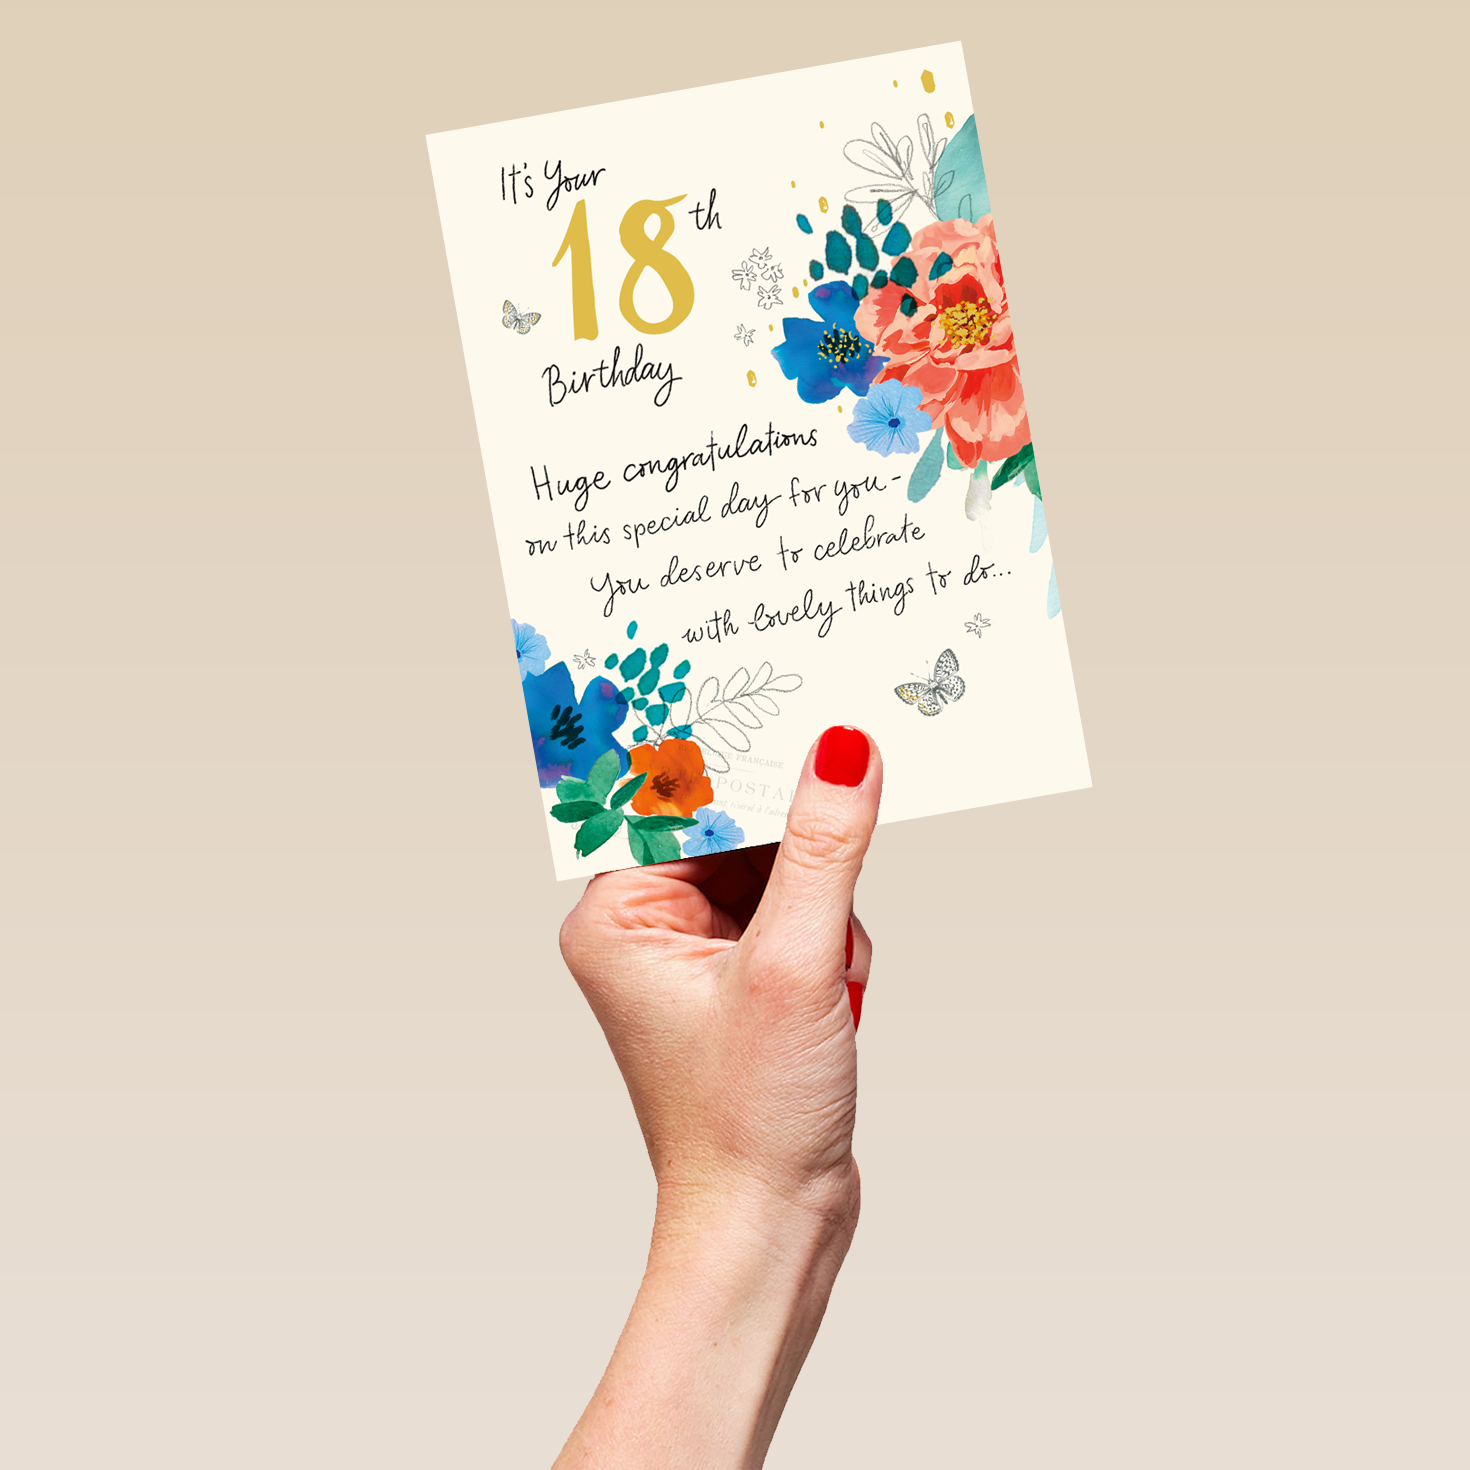 It's Your
18th
Birthday
Huge congratulations
on this special day for you -
You deserve to celebrate
with lovely things to do...
FRANÇAISE